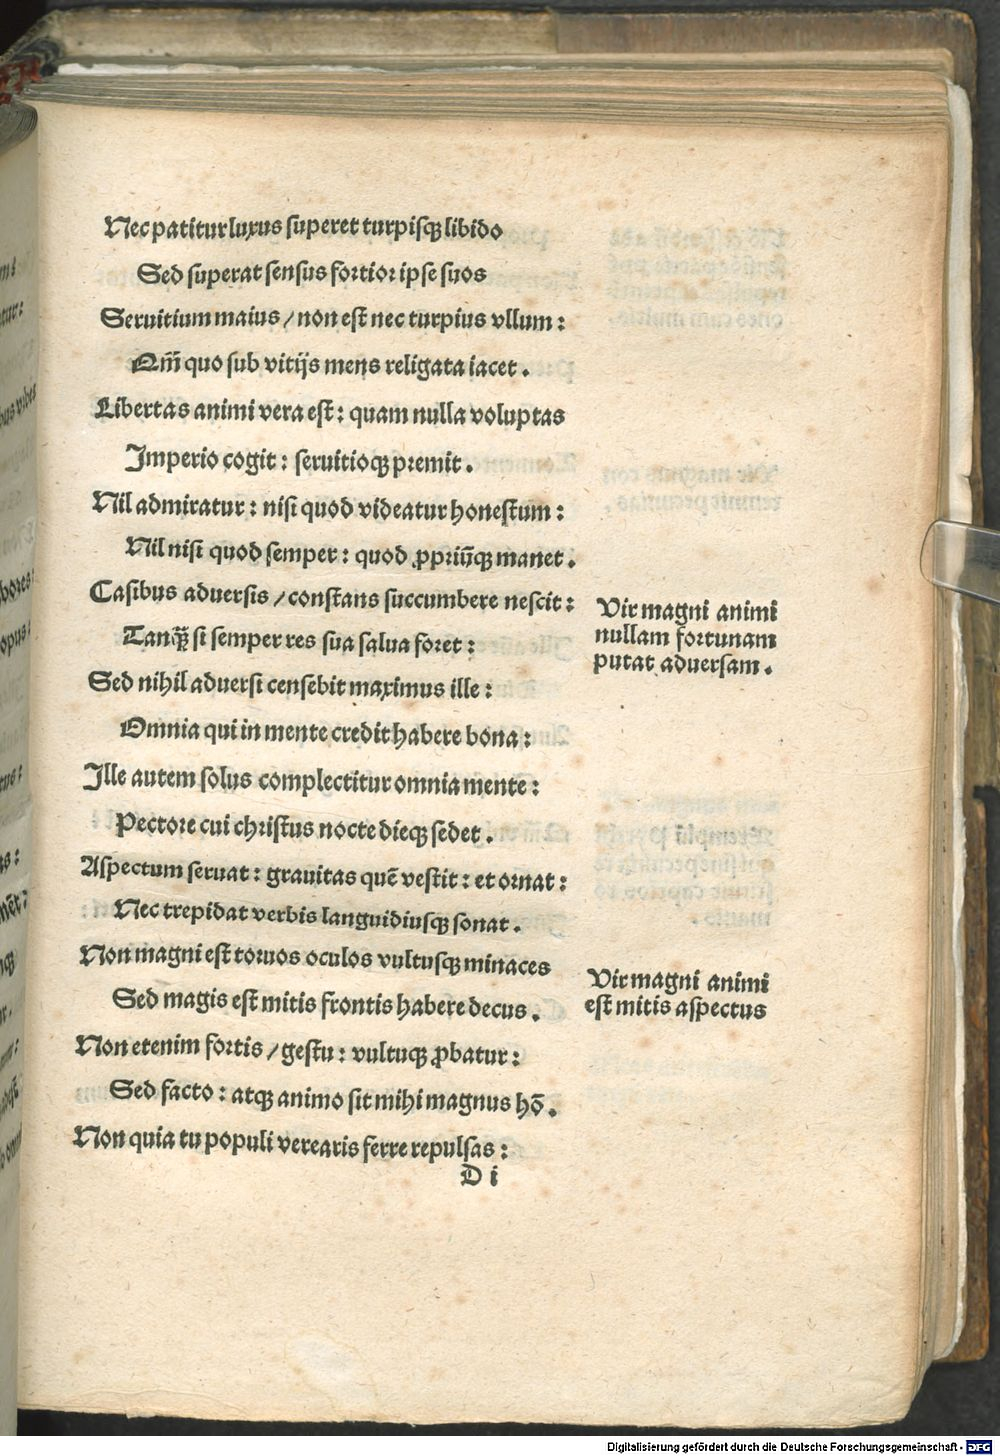 Nec patitur luxus superet turpisqꝫ libido
Sed superat sensus fortior ipse suos
Seruitium maius / non est nec turpius vllum:
Qm̃ quo sub vitijs mens religata iacet.
Libertas animi vera est: quam nulla voluptas
Imperio cogit: seruitioqꝫ premit.
Nil admiratur: nisi quod videatur honestum:
Nil nisi quod semper: quod ꝓpriũqꝫ manet.
Casibus aduersis / constans succumbere nescit:
Tanqꝫ̃ si semper res sua salua foret:
Vir magni animi
nullam fortunam
putat aduersam.
Sed nihil aduersi censebit maximus ille:
Omnia qui in mente credit habere bona:
Ille autem solus complectitur omnia mente:
Pectore cui christus nocte dieqꝫ sedet.
Aspectum seruat: grauitas quẽ vestit: et ornat:
Nec trepidat verbis languidiusqꝫ sonat.
Non magni est toruos oculos vultusqꝫ minaces
Sed magis est mitis frontis habere decus.
Vir magni animi
est mitis aspectus
Non etenim fortis / gestu: vultuqꝫ ꝓbatur:
Sed facto: atqꝫ animo sit mihi magnus hõ.
Non quia tu populi verearis ferre repulsas:
D i
Digitalisierung gefördert durch die Deutsche Forschungsgemeinschaft - DFG